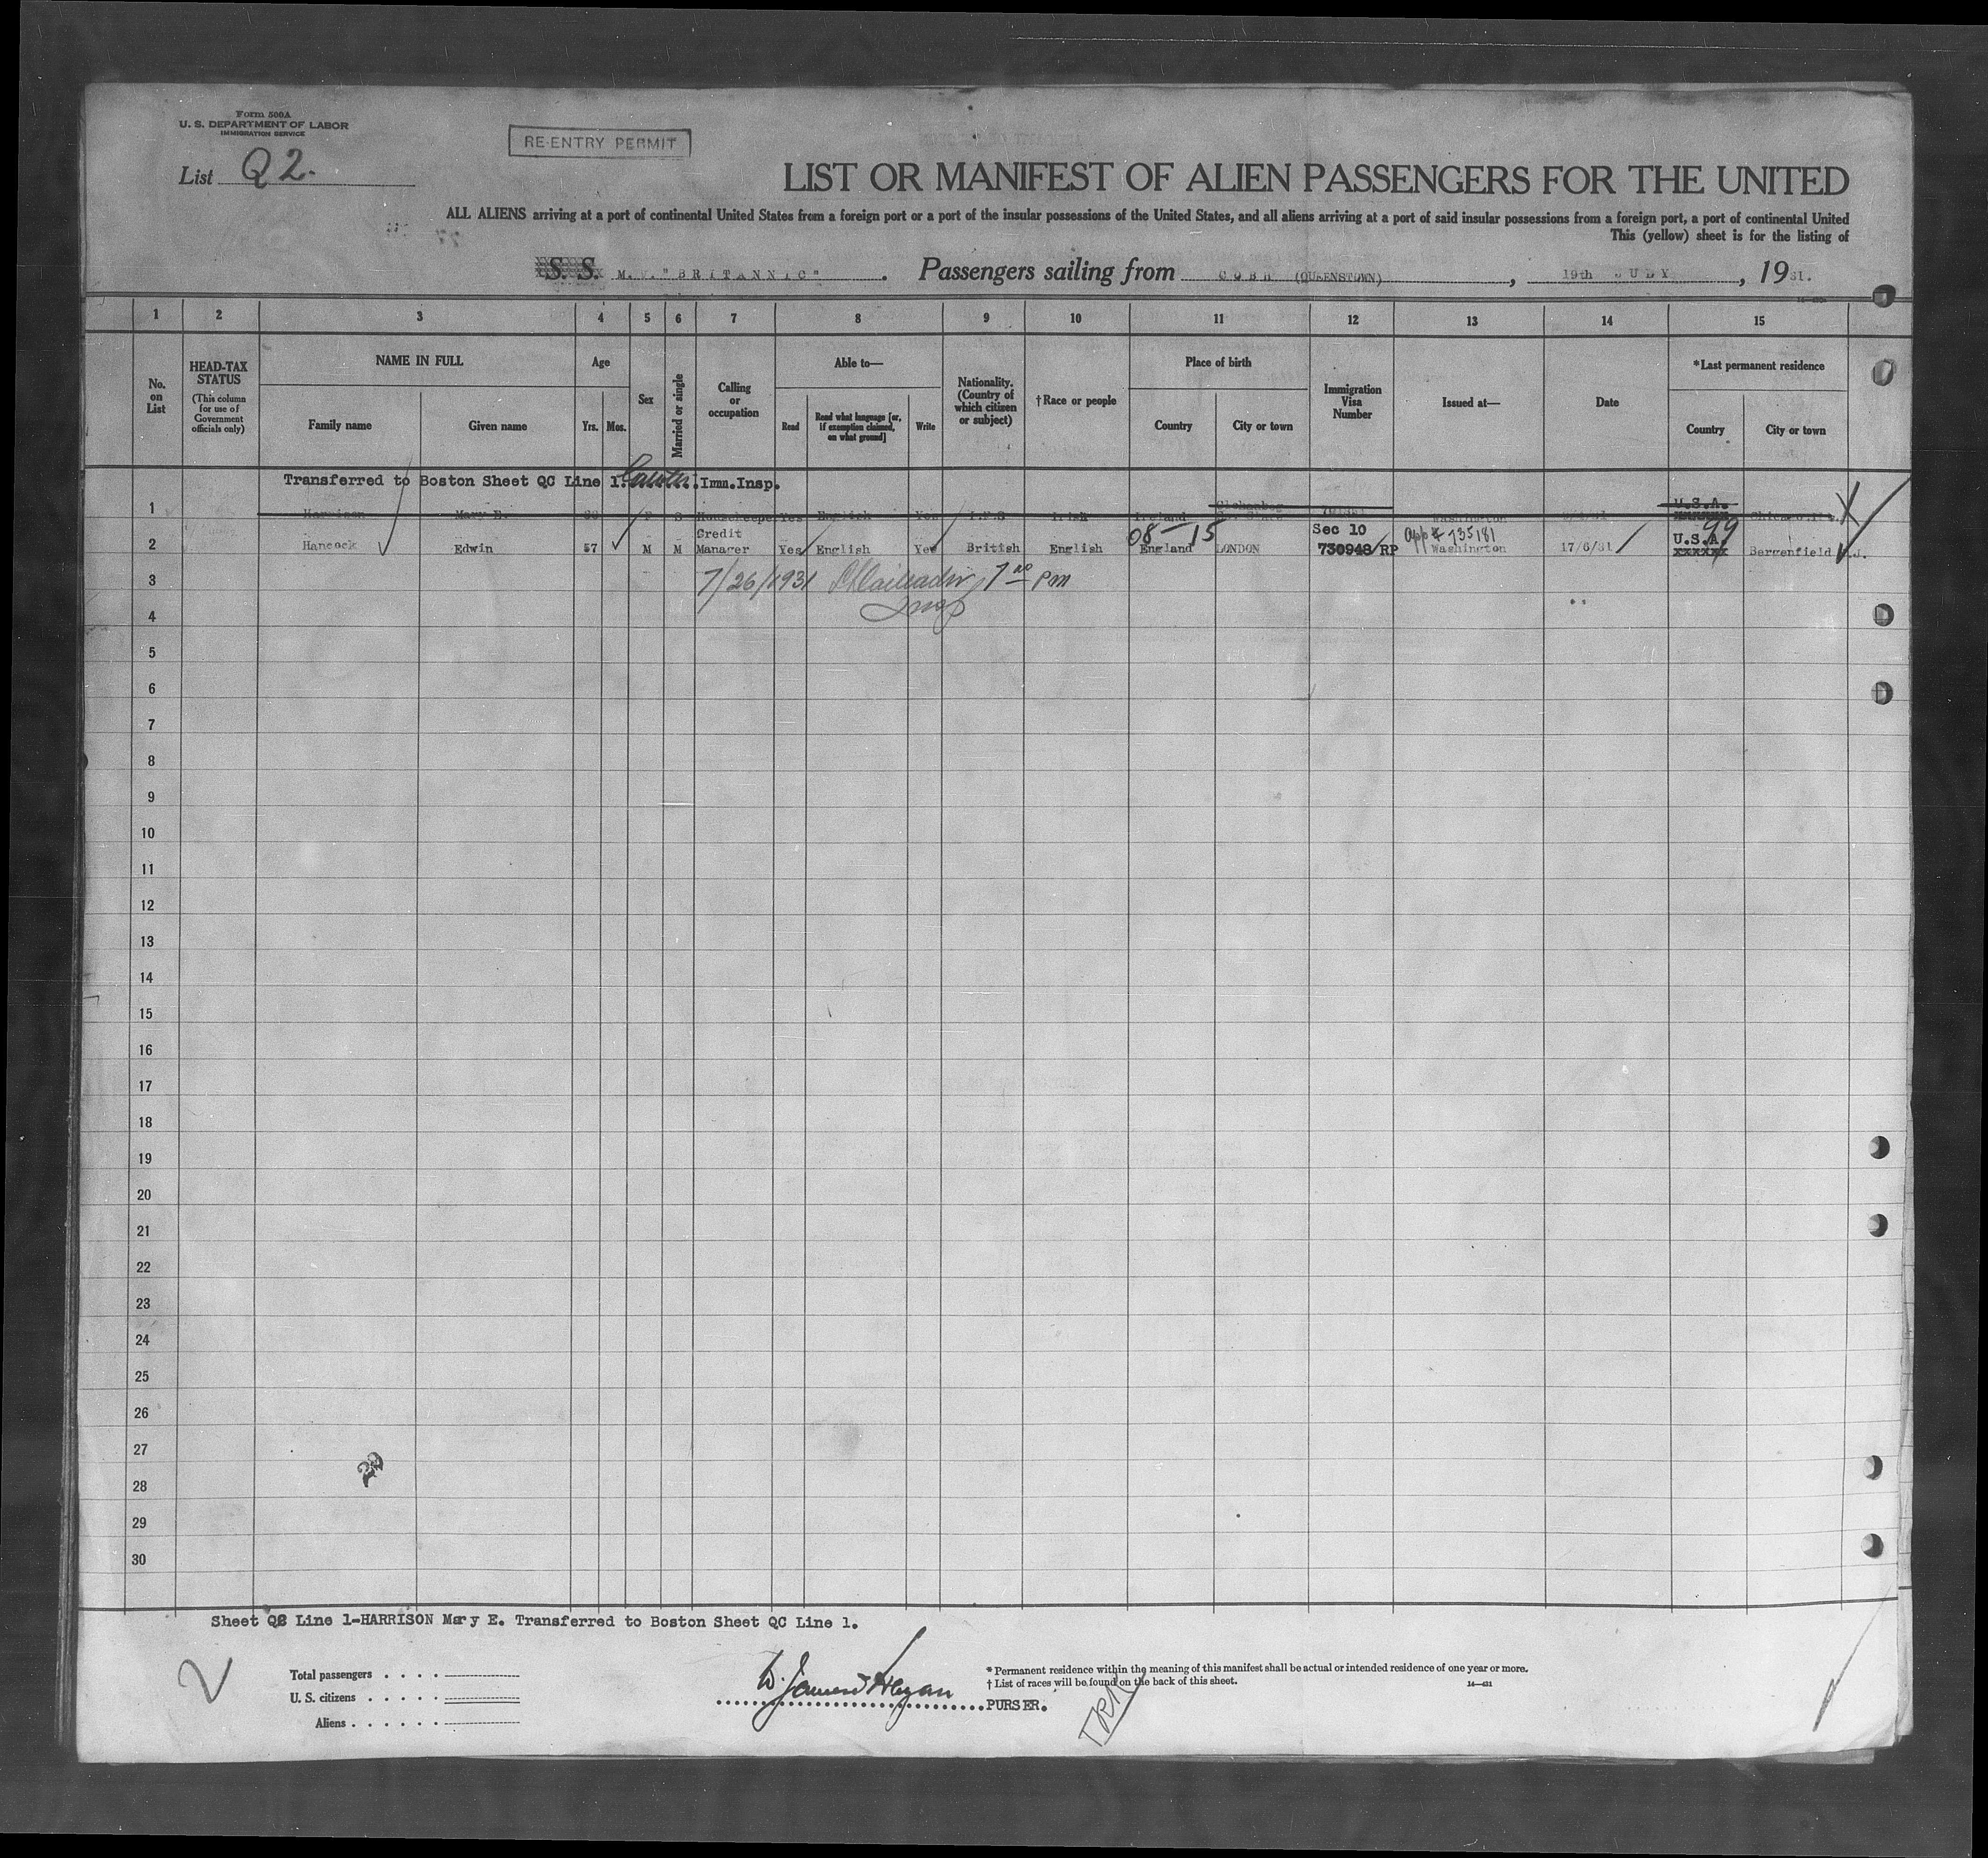 Form 500A
U. S. DEPARTMENT OF LABOR
IMMIGRATION SERVICE
RE-ENTRY PERMIT
List Q2.
LIST OR MANIFEST OF ALIEN PASSENGERS FOR THE UNITED
ALL ALIENS arriving at a port of continental United States from a foreign port or a port of the insular possessions of the United States, and all aliens arriving at a port of said insular possessions from a foreign port, a port of continental United
This (yellow) sheet is for the listing of
S. S. M. "BRITANNIC". Passengers sailing from COBH (QUEENSTOWN), 19th JULY, 1931.
1 2 3 4 5 6 7 8 9 10 11 12 13 14 15
No. on List
HEAD-TAX STATUS (This column for use of Government officials only)
NAME IN FULL
Family name Given name
Age
Yrs. Mos.
Sex
Married or single
Calling or occupation
Able to—
Read Read what language [or, if exemption claimed, on what ground] Write
Nationality. (Country of which citizen or subject)
†Race or people
Place of birth
Country City or town
Immigration Visa Number
Issued at—
Date
*Last permanent residence
Country City or town
Transferred to Boston Sheet QC Line 1. Imm.Insp.
1 Harrison Mary E. F S Housekeeper Yes English Yes I.F.S Irish Ireland Washington U.S.A. Chicago
2 Hancock Edwin 57 M M Credit Manager Yes English Yes British English 08-15 England LONDON Sec 10 730948/RP app # 735181 Washington 17/6/31 U.S.A. xxxxxx 99 Bergenfield N.J.
3 7/26/1931 7 00 pm
Insp
4
5
6
7
8
9
10
11
12
13
14
15
16
17
18
19
20
21
22
23
24
25
26
27
28
29
30
Sheet Q2 Line 1-HARRISON Mary E. Transferred to Boston Sheet QC Line 1.
2
Total passengers . . . .
U. S. citizens . . . . .
Aliens . . . . . .
PURSER.
* Permanent residence within the meaning of this manifest shall be actual or intended residence of one year or more.
† List of races will be found on the back of this sheet.
14—421